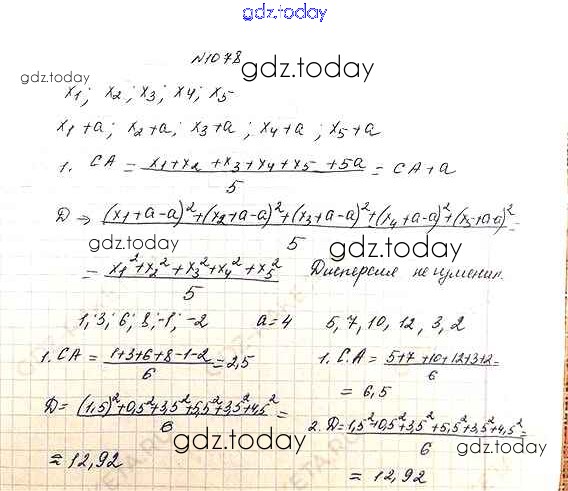 gdz.today
N1078
gdz.today
gdz.today
x1; x2; x3; x4; x5
x1+a; x2+a; x3+a; x4+a; x5+a
1. CA = (x1+x2+x3+x4+x5+5a)/5 = CA+a
D → ((x1+a-a)²+(x2+a-a)²+(x3+a-a)²+(x4+a-a)²+(x5+a-a)²)/5 =
gdz.today
gdz.today
= (x1²+x2²+x3²+x4²+x5²)/5 Дисперсия не изменил.
1; 3; 6; 8; -1; -2 a=4 5, 7, 10, 12, 3, 2
1. CA = (1+3+6+8-1-2)/6 = 2,5 1. C.A = (5+7+10+12+3+2)/6 =
= 6,5
D = ((1,5)²+0,5²+3,5²+5,5²+3,5²+4,5²)/6 = 2. D = (1,5²+0,5²+3,5²+5,5²+3,5²+4,5²)/6 =
gdz.today
gdz.today
≈ 12,92 = 12,92